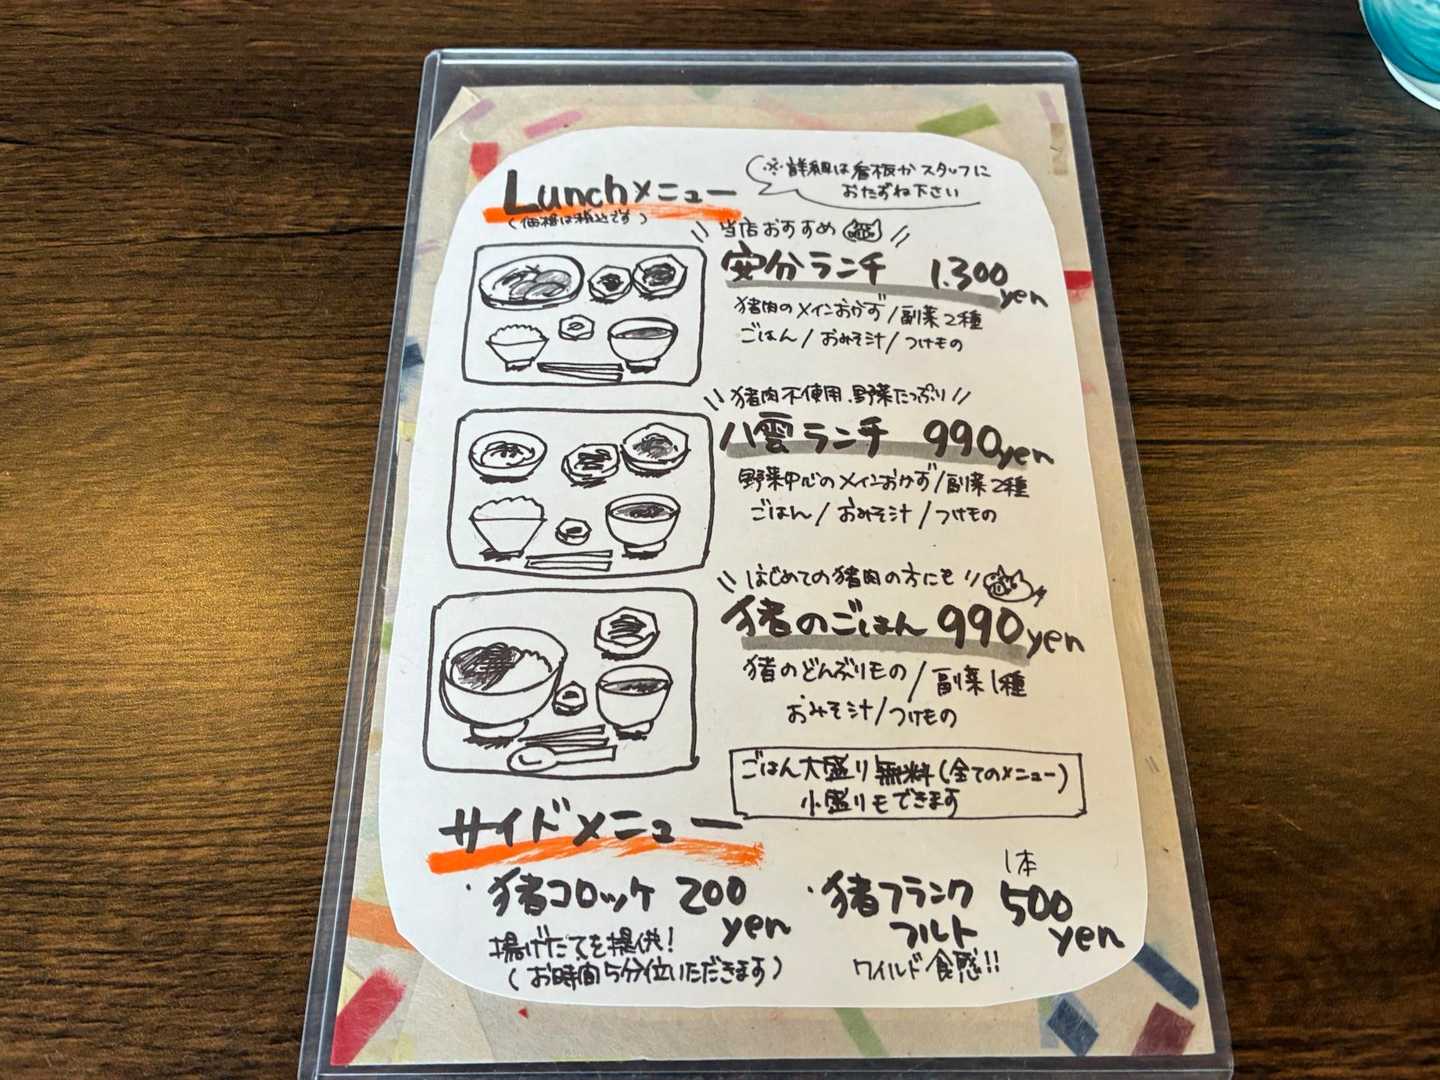 Lunchメニュー
(価格は税込です)
※詳細は看板かスタッフに
おたずね下さい
\\ 当店おすすめ //
安分ランチ 1.300yen
猪肉のメインおかず/副菜2種
ごはん/おみそ汁/つけもの
\\ 猪肉不使用、野菜たっぷり //
八雲ランチ 990yen
野菜中心のメインおかず/副菜2種
ごはん/おみそ汁/つけもの
\\ はじめての猪肉の方にも //
猪のごはん 990yen
猪のどんぶりもの/副菜1種
おみそ汁/つけもの
ごはん大盛り無料(全てのメニュー)
小盛りもできます
サイドメニュー
・猪コロッケ 200yen
揚げたてを提供!
(お時間5分位いただきます)
・猪フランクフルト 1本 500yen
ワイルド食感!!